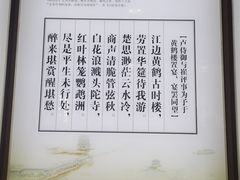 卢侍御与崔评事为予于
黄鹤楼置宴，宴罢同望
江边黄鹤古时楼，
劳置华筵待我游。
楚思渺茫云水冷，
商声清脆管弦秋。
白花浪溅头陀寺，
红叶林笼鹦鹉洲。
尽是平生未行处，
醉来堪赏醒堪愁。